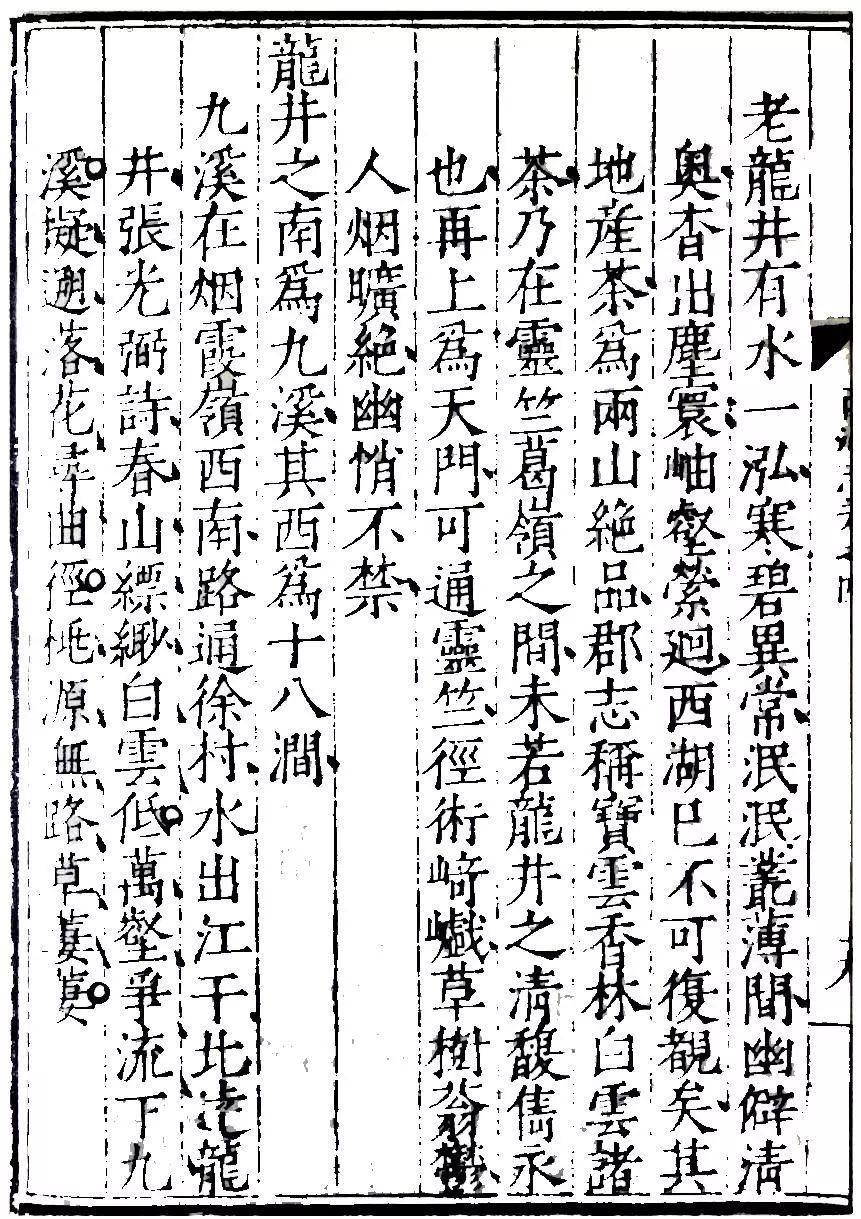 老龍井有水一泓寒碧異常泯泯叢薄間幽僻清
奧杳出塵寰岫壑縈廻西湖已不可復覩矣其
地産茶爲兩山絶品郡志稱寶雲香林白雲諸
茶乃在靈竺葛嶺之間未若龍井之清馥雋永
也再上爲天門可通靈竺徑術崎巇草樹蓊鬱
人烟曠絶幽悄不禁
龍井之南爲九溪其西爲十八澗
九溪在烟霞嶺西南路通徐村水出江干北達龍
井張光弼詩春山縹緲白雲低萬壑爭流下九
溪擬遡落花尋曲徑桃源無路草萋萋